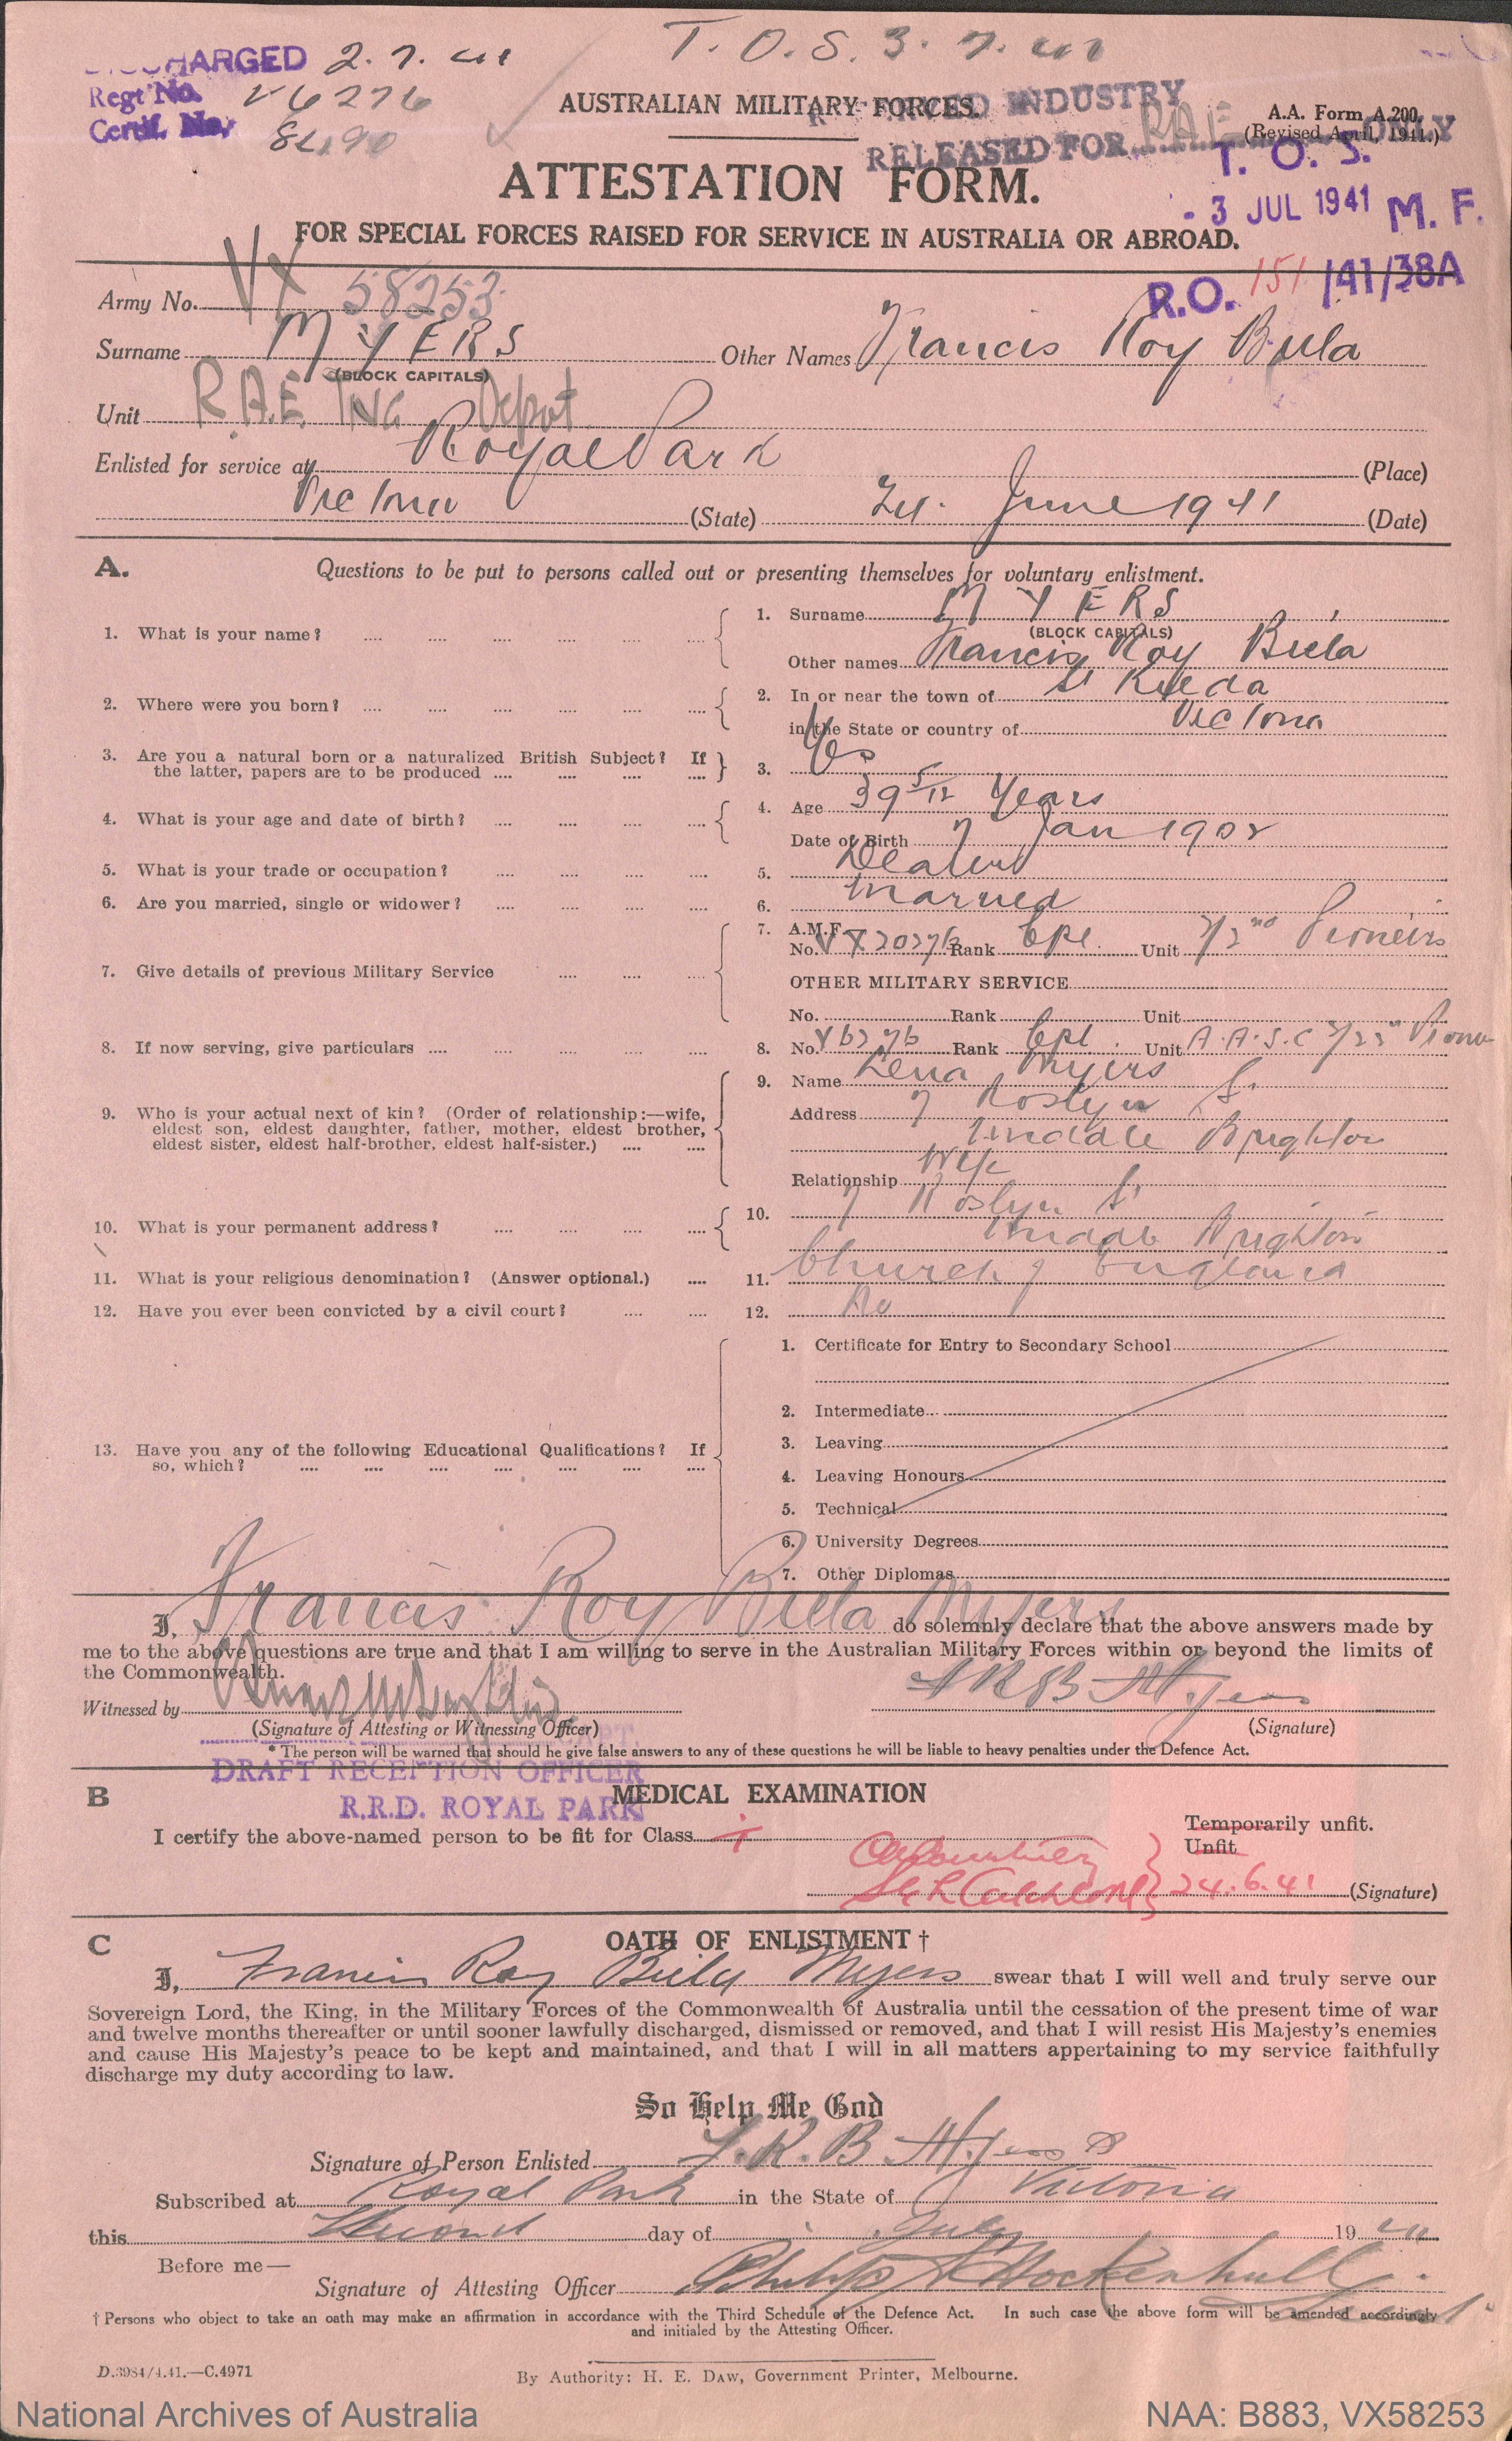 DISCHARGED 2.7.41
T.O.S. 3.7.41
Regt No. V6276
Certif. No.
AUSTRALIAN MILITARY FORCES.
INDUSTRY
RELEASED FOR RAE ONLY
A.A. Form A.200.
(Revised April, 1941.)
T. O. S.
- 3 JUL 1941 M. F.
ATTESTATION FORM.
FOR SPECIAL FORCES RAISED FOR SERVICE IN AUSTRALIA OR ABROAD.
R.O. 151/41/38A
Army No. VX 58253
Surname MYERS Other Names Francis Roy Biela
(BLOCK CAPITALS)
Unit R.A.E. TNG Depot
Enlisted for service at Royal Park (Place)
Victoria (State) 24. June 1941 (Date)
A. Questions to be put to persons called out or presenting themselves for voluntary enlistment.
1. What is your name? 1. Surname MYERS
(BLOCK CAPITALS)
Other names Francis Roy Biela
2. Where were you born? 2. In or near the town of St Kilda
in the State or country of Victoria
3. Are you a natural born or a naturalized British Subject? If
the latter, papers are to be produced 3. Yes
4. What is your age and date of birth? 4. Age 39 5/12 Years
Date of Birth 7 Jan 1902
5. What is your trade or occupation? 5. Dealer
6. Are you married, single or widower? 6. Married
7. Give details of previous Military Service 7. A.M.F.
No. VX20276 Rank Cpl. Unit 2/2nd Pioneers
OTHER MILITARY SERVICE
No. Rank Unit
8. If now serving, give particulars 8. No. V6276 Rank Cpl. Unit A.A.S.C
9. Who is your actual next of kin? (Order of relationship:—wife,
eldest son, eldest daughter, father, mother, eldest brother,
eldest sister, eldest half-brother, eldest half-sister.)
9. Name Lena Myers
Address 7 Roslyn St.
Middle Brighton
Relationship Wife
10. What is your permanent address? 10. 7 Roslyn St
Middle Brighton
11. What is your religious denomination? (Answer optional.) 11. Church of England
12. Have you ever been convicted by a civil court? 12. No
13. Have you any of the following Educational Qualifications? If
so, which?
1. Certificate for Entry to Secondary School
2. Intermediate
3. Leaving
4. Leaving Honours
5. Technical
6. University Degrees
7. Other Diplomas
I, Francis Roy Biela Myers do solemnly declare that the above answers made by
me to the above questions are true and that I am willing to serve in the Australian Military Forces within or beyond the limits of
the Commonwealth.
Witnessed by F R B Myers
(Signature of Attesting or Witnessing Officer) (Signature)
CAPT.
* The person will be warned that should he give false answers to any of these questions he will be liable to heavy penalties under the Defence Act.
DRAFT RECEPTION OFFICER
R.R.D. ROYAL PARK
B MEDICAL EXAMINATION
I certify the above-named person to be fit for Class I
Temporarily unfit.
Unfit
24.6.41 (Signature)
C OATH OF ENLISTMENT †
I, Francis Roy Biela Myers swear that I will well and truly serve our
Sovereign Lord, the King, in the Military Forces of the Commonwealth of Australia until the cessation of the present time of war
and twelve months thereafter or until sooner lawfully discharged, dismissed or removed, and that I will resist His Majesty's enemies
and cause His Majesty's peace to be kept and maintained, and that I will in all matters appertaining to my service faithfully
discharge my duty according to law.
So Help Me God
Signature of Person Enlisted F. R. B Myers
Subscribed at Royal Park in the State of Victoria
this Second day of July 1941
Before me—
Signature of Attesting Officer Philip Hockenhull Lieut.
† Persons who object to take an oath may make an affirmation in accordance with the Third Schedule of the Defence Act. In such case the above form will be amended accordingly
and initialed by the Attesting Officer.
D.3984/4.41.—C.4971
By Authority: H. E. DAW, Government Printer, Melbourne.
National Archives of Australia
NAA: B883, VX58253